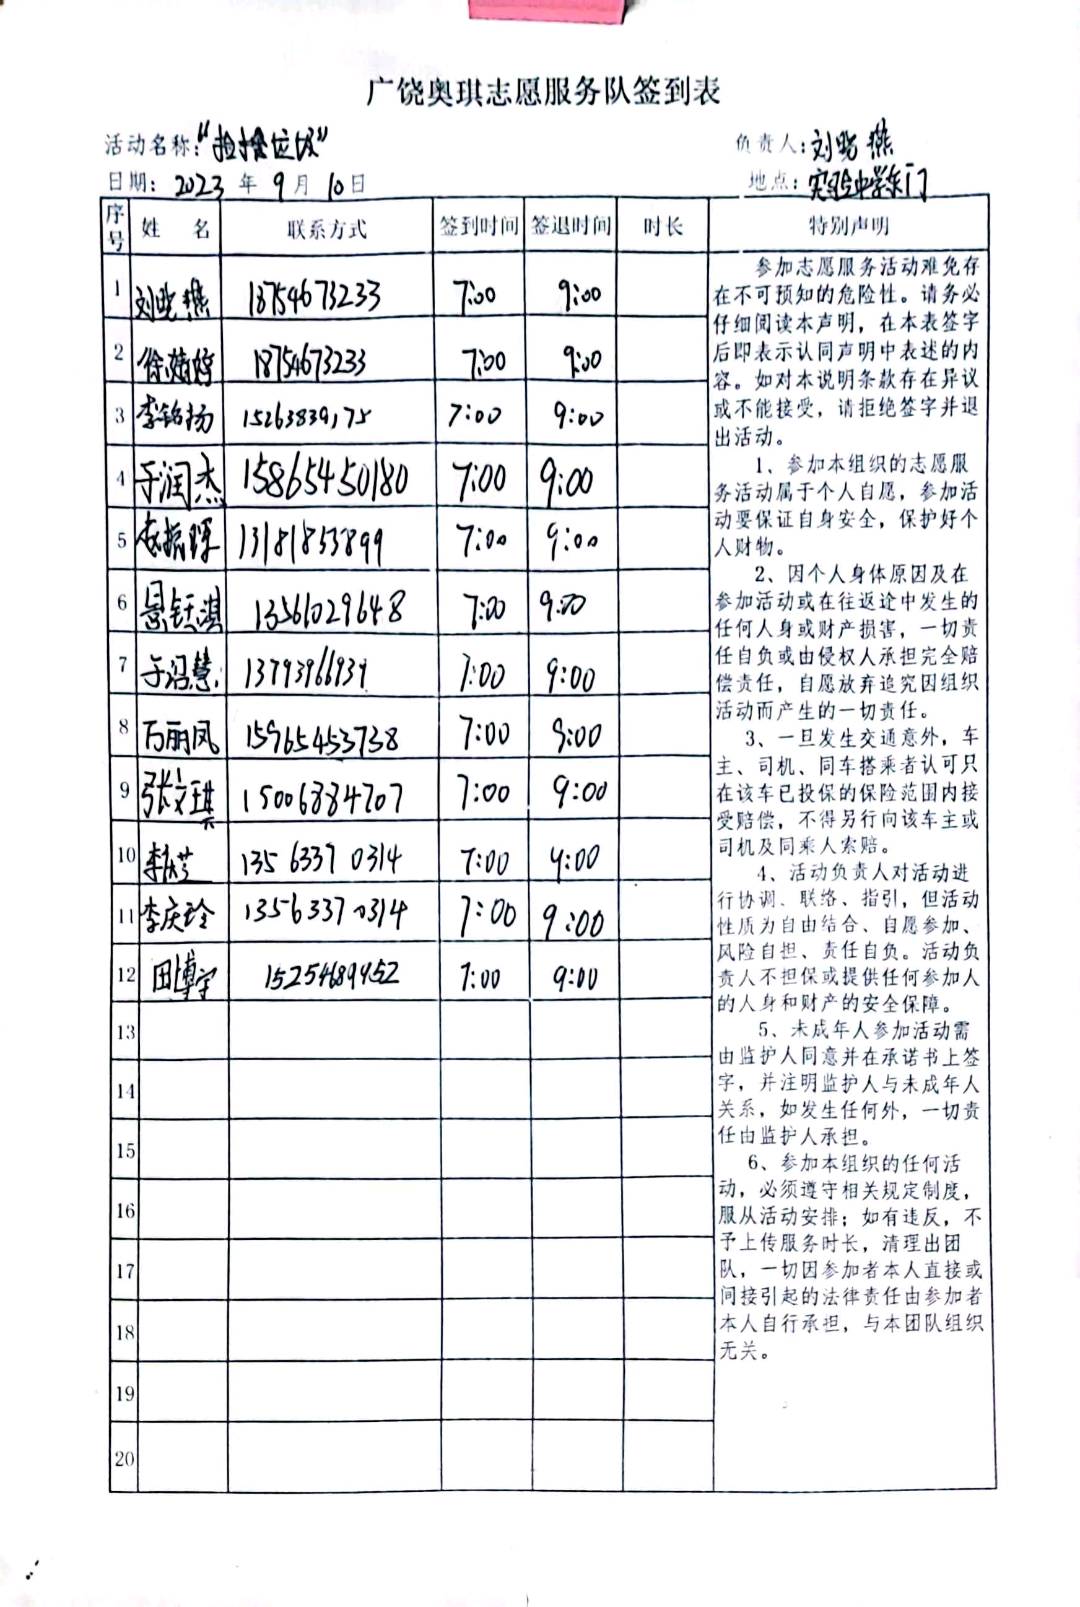 广饶奥琪志愿服务队签到表
活动名称："捡拾垃圾" 负责人：刘晓燕
日期：2023年9月10日 地点：实验中学东门
序号 姓 名 联系方式 签到时间 签退时间 时长 特别声明
1 刘晓燕 18754673233 7:00 9:00
2 徐婧婷 18754673233 7:00 9:00
3 李铭扬 15263839175 7:00 9:00
4 于润杰 15865450180 7:00 9:00
5 振晖 13181853899 7:00 9:00
6 景钰淇 13561029648 7:00 9:00
7 于冯慧 13793966939 7:00 9:00
8 万丽凤 15965453738 7:00 9:00
9 张文琪 15006884707 7:00 9:00
10 李庆芝 13563370314 7:00 9:00
11 李庆玲 13563370314 7:00 9:00
12 田博宇 15254689952 7:00 9:00
13
14
15
16
17
18
19
20
参加志愿服务活动难免存
在不可预知的危险性。请务必
仔细阅读本声明，在本表签字
后即表示认同声明中表述的内
容。如对本说明条款存在异议
或不能接受，请拒绝签字并退
出活动。
1、参加本组织的志愿服
务活动属于个人自愿，参加活
动要保证自身安全，保护好个
人财物。
2、因个人身体原因及在
参加活动或在往返途中发生的
任何人身或财产损害，一切责
任自负或由侵权人承担完全赔
偿责任，自愿放弃追究因组织
活动而产生的一切责任。
3、一旦发生交通意外，车
主、司机、同车搭乘者认可只
在该车已投保的保险范围内接
受赔偿，不得另行向该车主或
司机及同乘人索赔。
4、活动负责人对活动进
行协调、联络、指引，但活动
性质为自由结合、自愿参加、
风险自担、责任自负。活动负
责人不担保或提供任何参加人
的人身和财产的安全保障。
5、未成年人参加活动需
由监护人同意并在承诺书上签
字，并注明监护人与未成年人
关系，如发生任何外，一切责
任由监护人承担。
6、参加本组织的任何活
动，必须遵守相关规定制度，
服从活动安排；如有违反，不
予上传服务时长，清理出团
队，一切因参加者本人直接或
间接引起的法律责任由参加者
本人自行承担，与本团队组织
无关。